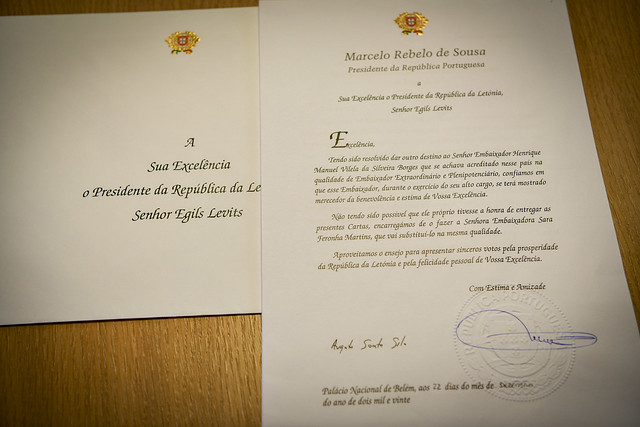 A
Sua Excelência
o Presidente da República da Le
Senhor Egils Levits
Marcelo Rebelo de Sousa
Presidente da República Portuguesa
a
Sua Excelência o Presidente da República da Letónia,
Senhor Egils Levits
Excelência,
Tendo sido resolvido dar outro destino ao Senhor Embaixador Henrique
Manuel Vilela da Silveira Borges que se achava acreditado nesse país na
qualidade de Embaixador Extraordinário e Plenipotenciário, confiamos em
que esse Embaixador, durante o exercício do seu alto cargo, se terá mostrado
merecedor da benevolência e estima de Vossa Excelência.
Não tendo sido possível que ele próprio tivesse a honra de entregar as
presentes Cartas, encarregámos de o fazer a Senhora Embaixadora Sara
Feronha Martins, que vai substituí-lo na mesma qualidade.
Aproveitamos o ensejo para apresentar sinceros votos pela prosperidade
da República da Letónia e pela felicidade pessoal de Vossa Excelência.
Com Estima e Amizade
Augusto Santos Silva
Palácio Nacional de Belém, aos 22 dias do mês de dezembro
do ano de dois mil e vinte